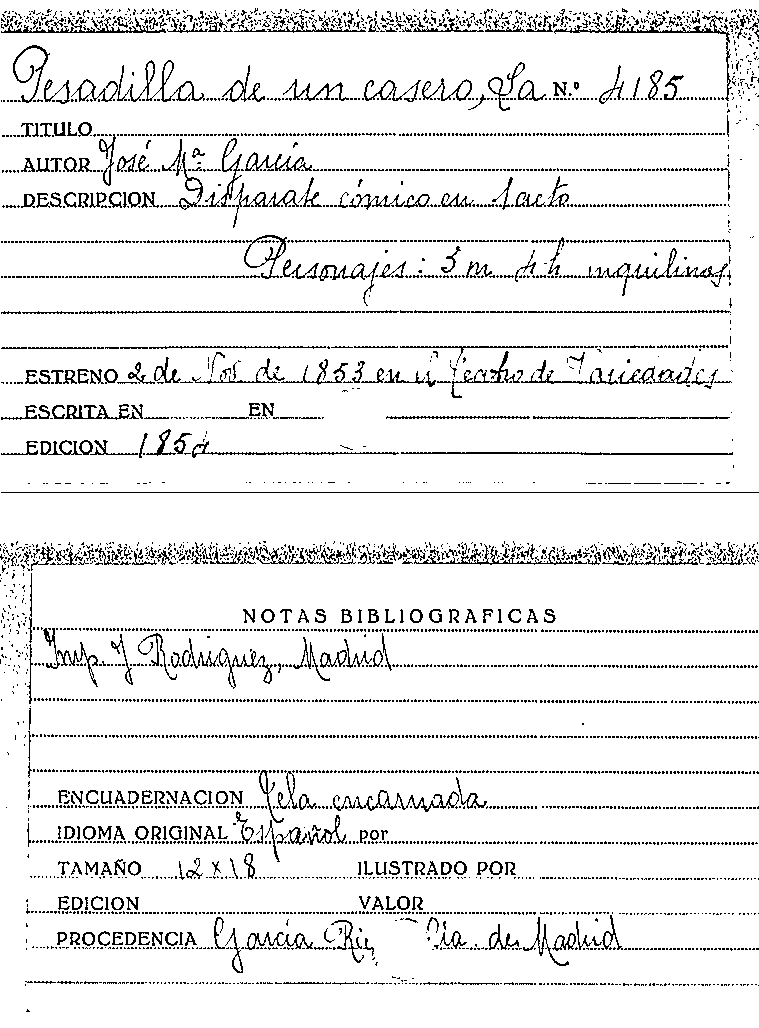 Pesadilla de un casero, La N.º 4185
TITULO
AUTOR José Mª García
DESCRIPCION Disparate cómico en 1 acto
Personajes: 3 m 4 h inquilinos
ESTRENO 2 de Nov. de 1853 en el Teatro de Variedades
ESCRITA EN EN
EDICION 1854
NOTAS BIBLIOGRAFICAS
Imp. J Rodriguez, Madrid
ENCUADERNACION Tela encarnada
IDIOMA ORIGINAL Español por
TAMAÑO 12 x 18 ILUSTRADO POR
EDICION VALOR
PROCEDENCIA García Rie de Madrid